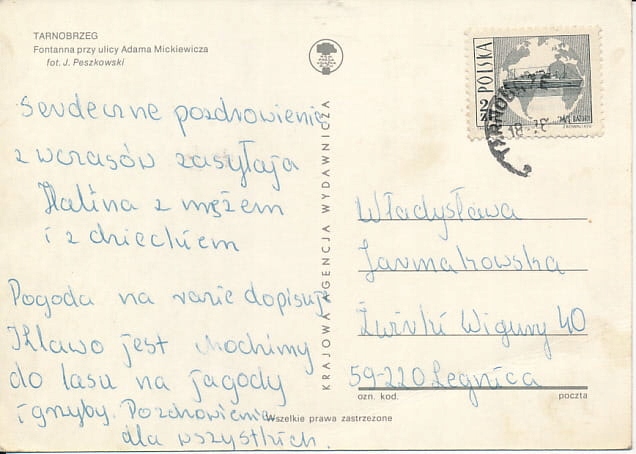 TARNOBRZEG
Fontanna przy ulicy Adama Mickiewicza
fot. J. Peszkowski
Serdeczne pozdrowienia
z wczasów zasyłają
Halina z mężem
i z dzieckiem
Pogoda na razie dopisuje
Klawo jest chodzimy
do lasu na jagody
i grzyby. Pozdrowienia
dla wszystkich.
KRAJOWA AGENCJA WYDAWNICZA
POLSKA
2 ZŁ
M/S BATORY
TARNOBRZEG
Władysława
Jarmakowska
Żwirki Wigury 40
59-220 Legnica
ozn. kod. poczta
Wszelkie prawa zastrzeżone